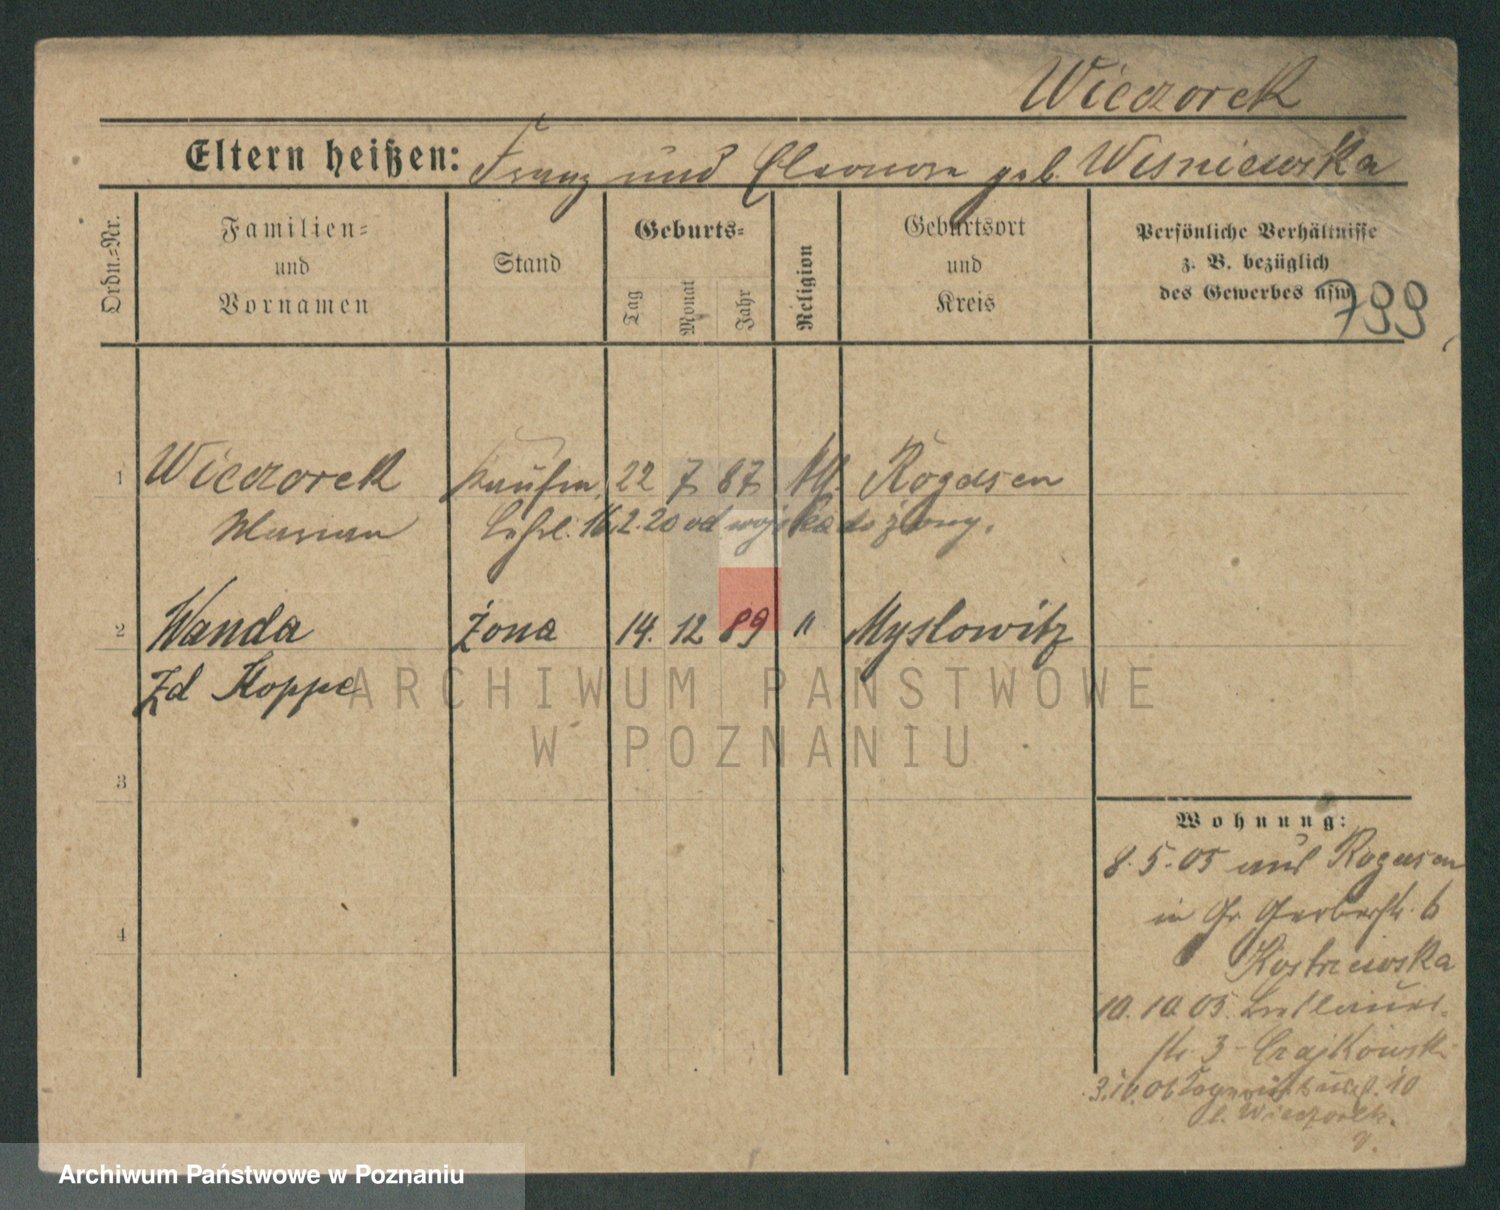 Wieczorek
Eltern heißen: Franz und Eleonora geb. Wisniewska
Ordn.=Nr.
Familien=
und
Vornamen
Stand
Geburts=
Tag
Monat
Jahr
Religion
Geburtsort
und
Kreis
Persönliche Verhältnisse
z. B. bezüglich
des Gewerbes usw.
799
1 Wieczorek Kaufm. 22 7 87 kth. Rogasen
Marian Lehrl. 16.2.20 od wojska do żony.
2 Wanda Żona 14. 12 89 " Myslowitz
Zd Hoppe
3
4
Wohnung:
8.5.05 aus Rogasen
in Gr. Gerberstr. 6
Kostrzewska
10.10.05. Breslauer-
str. 3 Czajkowski
3.10.06 10
b. Wieczorek.
ARCHIWUM PAŃSTWOWE
W POZNANIU
Archiwum Państwowe w Poznaniu